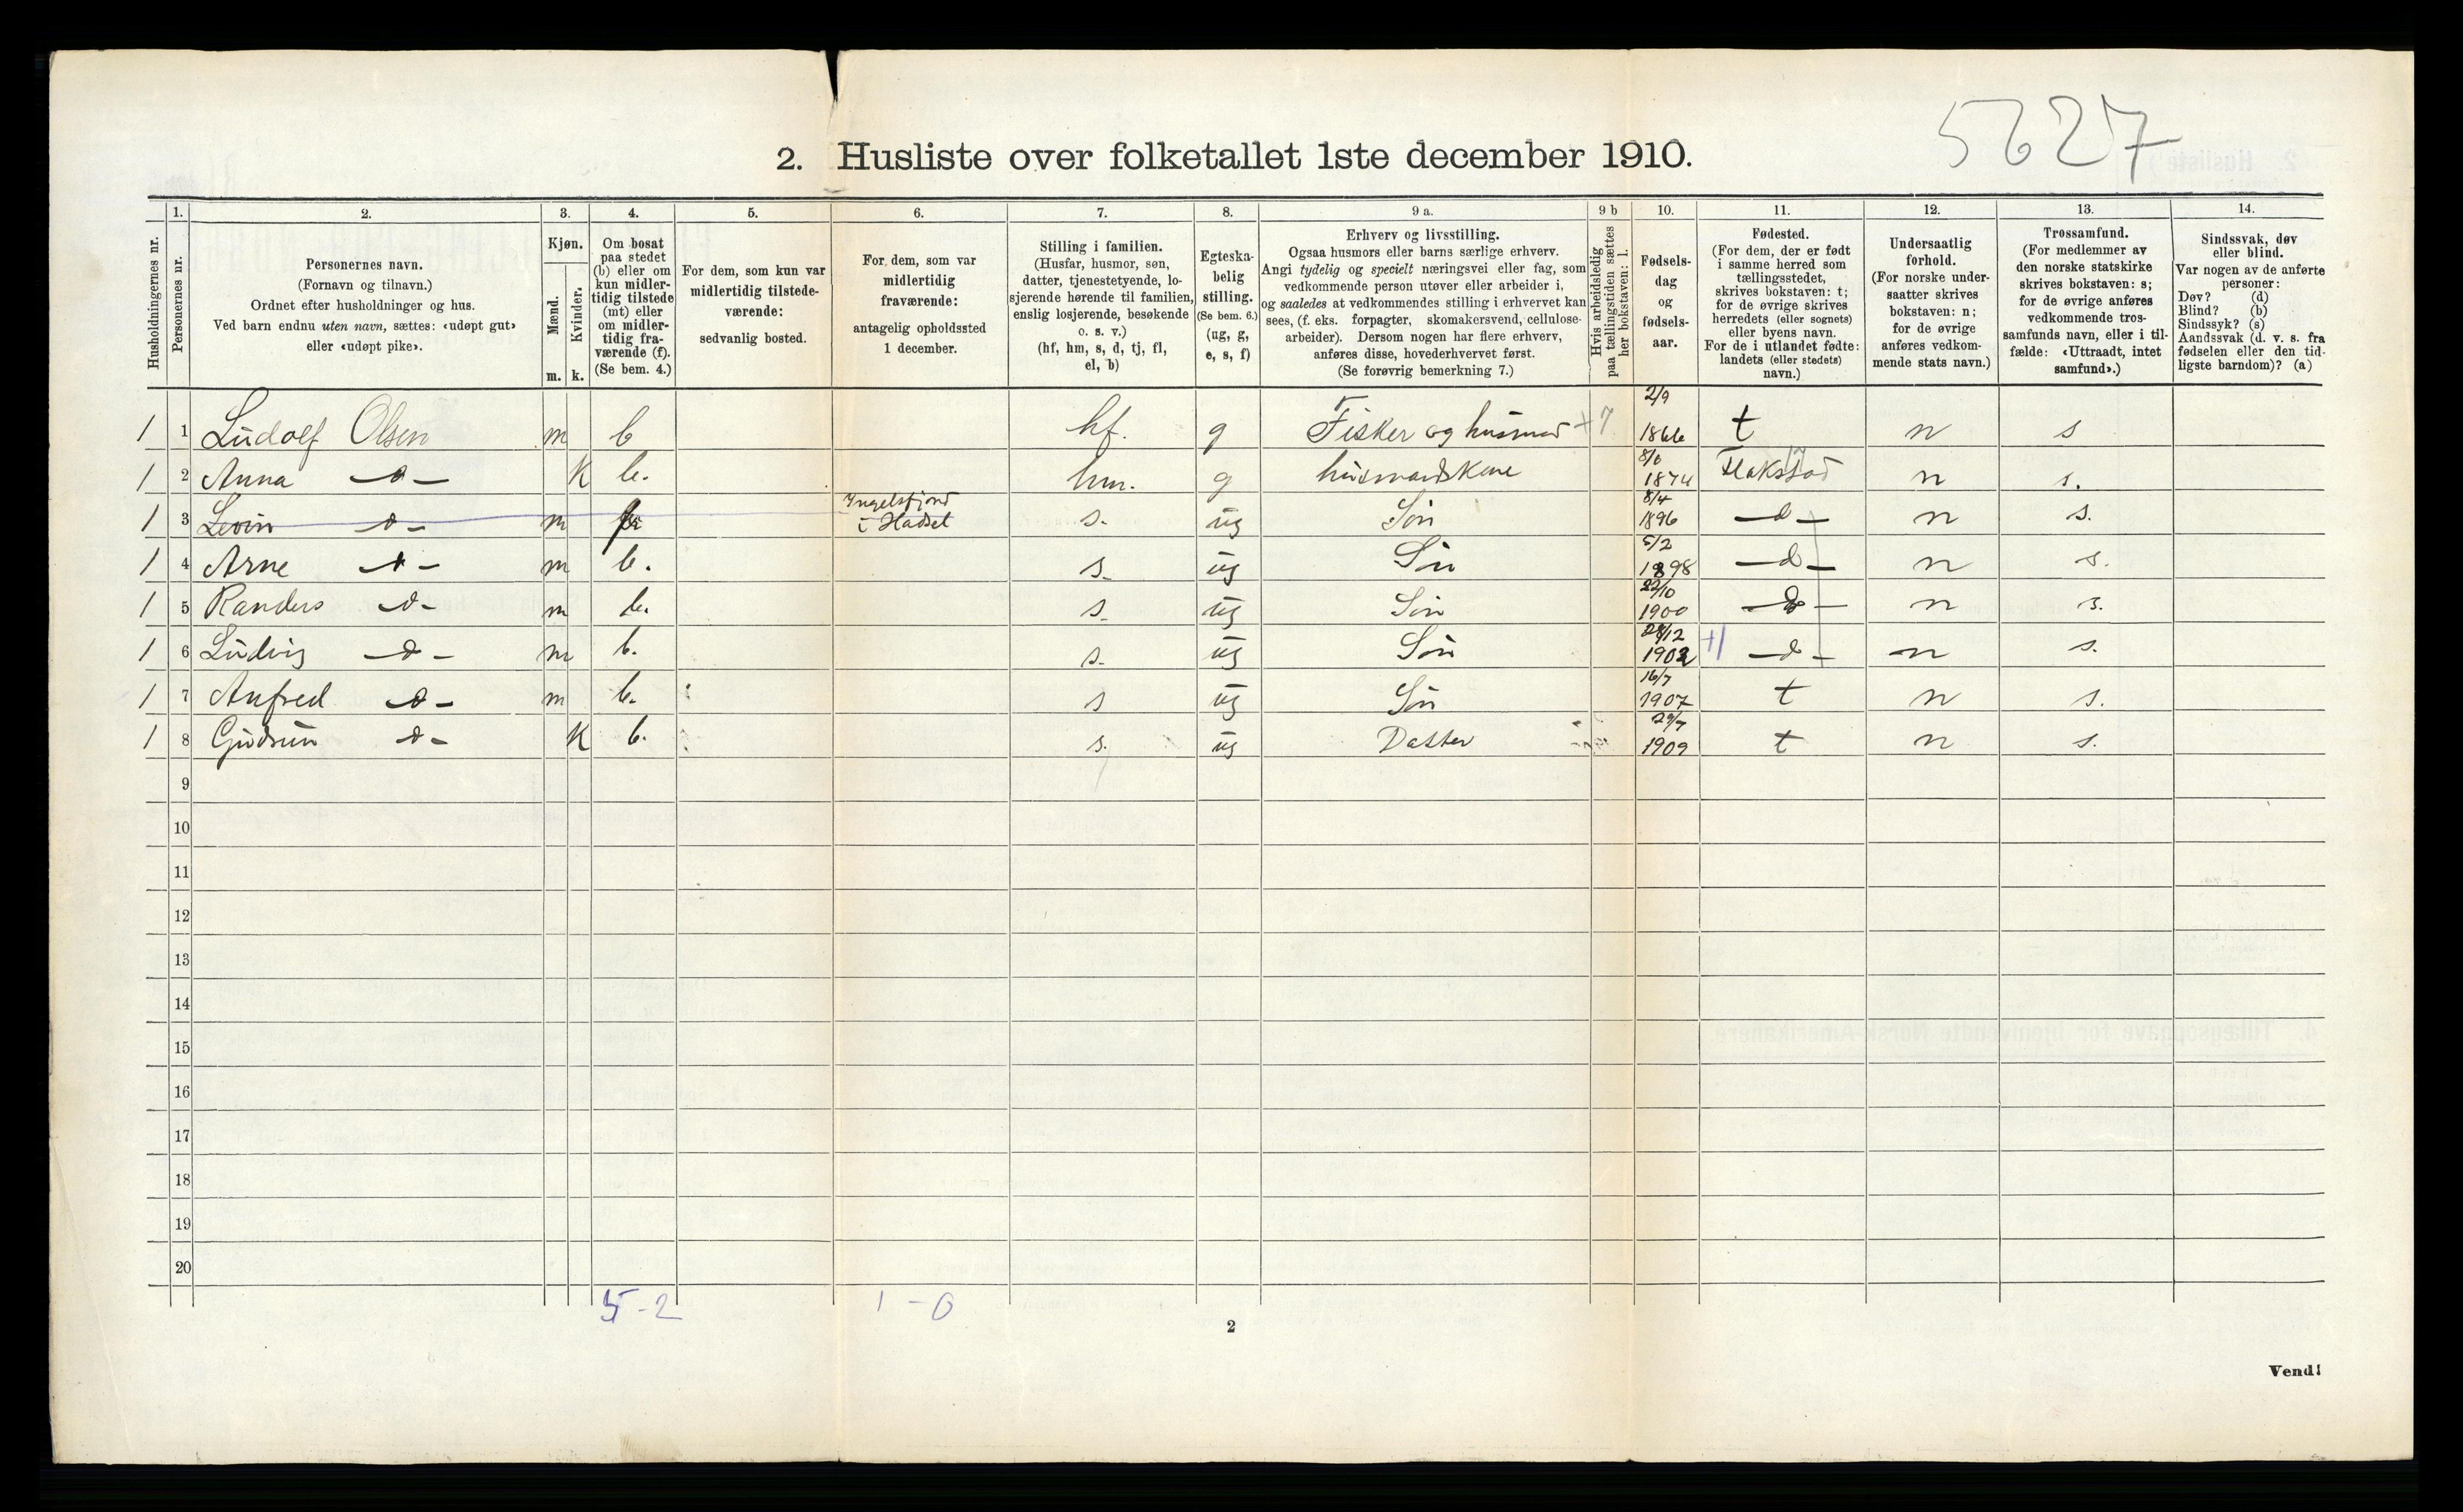 5627
2. Husliste over folketallet 1ste december 1910.
Husholdningernes nr.
1. Personernes nr.
2. Personernes navn.
(Fornavn og tilnavn.)
Ordnet efter husholdninger og hus.
Ved barn endnu uten navn, sættes: «udøpt gut»
eller «udøpt pike».
3. Kjøn.
Mænd. m.
Kvinder. k.
4. Om bosat
paa stedet
(b) eller om
kun midler-
tidig tilstede
(mt) eller
om midler-
tidig fra-
værende (f).
(Se bem. 4.)
5. For dem, som kun var
midlertidig tilstede-
værende:
sedvanlig bosted.
6. For dem, som var
midlertidig
fraværende:
antagelig opholdssted
1 december.
7. Stilling i familien.
(Husfar, husmor, søn,
datter, tjenestetyende, lo-
sjerende hørende til familien,
enslig losjerende, besøkende
o. s. v.)
(hf, hm, s, d, tj, fl,
el, b)
8. Egteska-
belig
stilling.
(Se bem. 6.)
(ug, g,
e, s, f)
9 a. Erhverv og livsstilling.
Ogsaa husmors eller barns særlige erhverv.
Angi tydelig og specielt næringsvei eller fag, som
vedkommende person utøver eller arbeider i,
og saaledes at vedkommendes stilling i erhvervet kan
sees, (f. eks. forpagter, skomakersvend, cellulose-
arbeider). Dersom nogen har flere erhverv,
anføres disse, hovederhvervet først.
(Se forøvrig bemerkning 7.)
9 b Hvis arbeidsledig
paa tællingstiden sættes
her bokstaven: l.
10. Fødsels-
dag
og
fødsels-
aar.
11. Fødested.
(For dem, der er født
i samme herred som
tællingsstedet,
skrives bokstaven: t;
for de øvrige skrives
herredets (eller sognets)
eller byens navn.
For de i utlandet fødte:
landets (eller stedets)
navn.)
12. Undersaatlig
forhold.
(For norske under-
saatter skrives
bokstaven: n;
for de øvrige
anføres vedkom-
mende stats navn.)
13. Trossamfund.
(For medlemmer av
den norske statskirke
skrives bokstaven: s;
for de øvrige anføres
vedkommende tros-
samfunds navn, eller i til-
fælde: «Uttraadt, intet
samfund».)
14. Sindssvak, døv
eller blind.
Var nogen av de anførte
personer:
Døv? (d)
Blind? (b)
Sindssyk? (s)
Aandssvak (d. v. s. fra
fødselen eller den tid-
ligste barndom)? (a)
1 1 Ludolf Olsen m b hf. g Fisker og husmand +7 2/9 1866 t n s
1 2 Anna -d- K b. hm. g husmandskone 1874 Flakstad n s.
1 3 Levin -d- m Ingelsfjord i Hadsel s. ug Søn 8/4 1896 -d- n s.
1 4 Arne -d- m b. s. ug Søn 5/2 1898 -d- n s.
1 5 Randers -d- m b. s. ug Søn 22/10 1900 -d- n s.
1 6 Ludvig -d- m b. s. ug Søn 28/12 1902 -d- n s.
1 7 Anfred -d- m b. s ug Søn 16/7 1907 t n s.
1 8 Gudrun -d- K b. s. ug Datter 29/7 1909 t n s.
9
10
11
12
13
14
15
16
17
18
19
20
5-2 1-0
2
Vend!